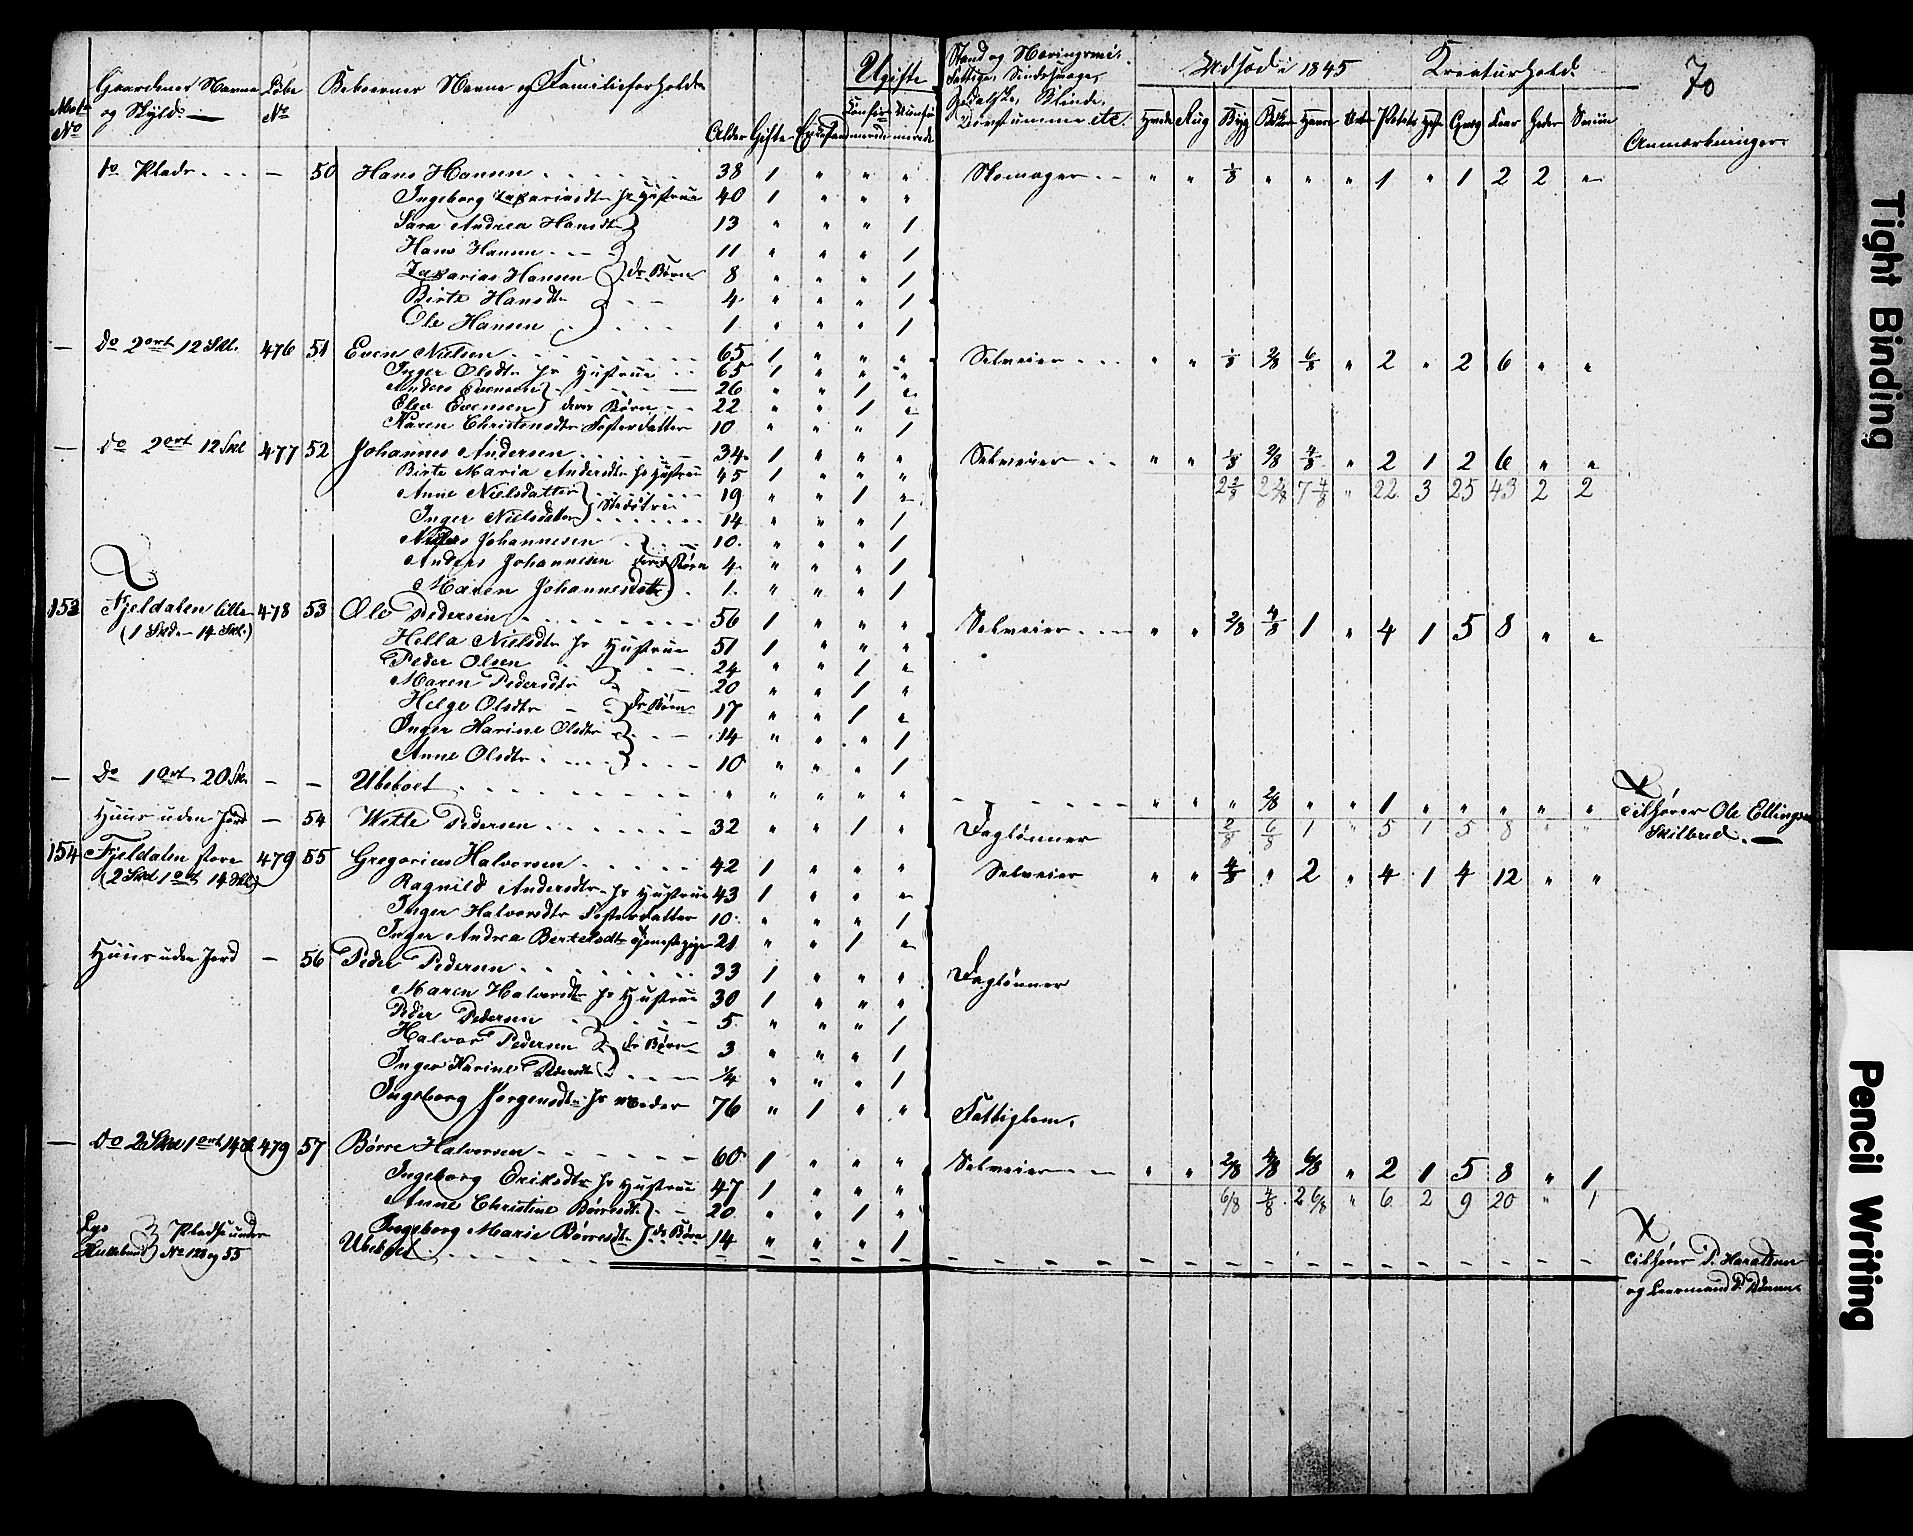 70
Matr. No | Gaardenes Navne og Skyld. | Løbe No | Beboernes Navne og Familieforhold | Alder | Gifte | Ugifte | Udsæd i 1845 | Kreaturhold. | Anmærkninger
Hvede | Rug | Byg | Havre | Potets | Heste | Qvæg | Faar | Geder | Sviin
do Plads | — | 50 | Hans Hansen | 38 | 1 | " | " | " | Skomager | " | " | 1/8 | " | " | " | 1 | " | 1 | 2 | 2 | "
Ingeborg Zakariasdtr hs Hustrue | 40 | 1 | " | " | "
Sara Andrea Hansdtr | 13 | " | " | " | 1
Hans Hansen | 11 | " | " | " | 1
Zakarias Hansen | ds Børn | 8 | " | " | " | 1
Birte Hansdtr | 4 | " | " | " | 1
Ole Hansen | 1 | " | " | " | 1
— | do 2 ort 12 Skl. | 476 | 51 | Even Nielsen | 65 | 1 | " | " | " | Selveier | " | " | 1/8 | 2/8 | 6/8 | " | 2 | " | 2 | 6 | " | "
Inger Olsdtr hs Hustrue | 65 | 1 | " | " | "
Anders Evensen | 26 | " | " | 1 | "
Elev Evensen | deres Børn | 22 | " | " | 1 | "
Karen Christensdtr Fosterdatter | 10 | " | " | " | 1
— | do 2 ort 12 Skl | 477 | 52 | Johannes Andersen | 34 | 1 | " | " | " | Selveier | " | " | 1/8 | 2/8 | 4/8 | " | 2 | 1 | 2 | 6 | " | "
Birte Maria Andersdtr hs Hustrue | 45 | 1 | " | " | "
2 2/8 | 2 2/8 | 7 4/8 | " | 22 | 3 | 25 | 43 | 2 | 2
Anne Nielsdatter | 19 | " | " | 1 | "
Inger Nielsdatter | 14 | " | " | " | 1
Johannesen | 10 | " | " | " | 1
Anders Johannesen | deres Børn | 4 | " | " | " | 1
Maren Johannesdtr | 1 | " | " | " | 1
153 | Fjeldalen lille | 478 | 53 | Ole Pedersen | 56 | 1 | " | " | " | Selveier | " | " | 2/8 | 4/8 | 1 | " | 4 | 1 | 5 | 8 | " | "
(1 Skd — 14 Skl.)
Hella Nielsdtr hs Hustrue | 51 | 1 | " | " | "
Peder Olsen | 24 | " | " | 1 | "
Maren Pedersdtr | 20 | " | " | 1 | "
Helge Olsdtr | ds Børn | 17 | " | " | 1 | "
Inger Karine Olsdtr | 14 | " | " | " | 1
Anne Olsdtr | 10 | " | " | " | 1
— | do 1 ort 20 Sk. | — | — | Ubeboet | " | " | " | " | " | " | " | " | 2/8 | " | " | 1 | " | " | " | " | " | tilhører Ole Ellingsen
Skilbred.
Huus uden Jord | — | 54 | Pedersen | 32 | " | " | 1 | " | Daglønner | 2/8 | 6/8 | 1 | " | 5 | 1 | 5 | 8 | " | "
154 | Fjeldalen store | 479 | 55 | Gregorius Halvorsen | 42 | 1 | " | " | " | Selveier | " | " | 4/8 | " | 2 | " | 4 | 1 | 4 | 12 | " | "
(2 Skd 1 ort 14 Skl)
Ragnild Andersdtr hs Hustrue | 43 | 1 | " | " | "
Inger Halvorsdtr Fosterdatter | 10 | " | " | " | 1
Inger Andrea Bertelsdtr Tjenestepige | 21 | " | " | 1 | "
Huus uden Jord | — | 56 | Peder Pedersen | 33 | 1 | " | " | " | Daglønner
Maren Halvorsdtr hs Hustrue | 30 | 1 | " | " | "
Peder Pedersen | 5 | " | " | " | 1
Halvor Pedersen | ds Børn | 3 | " | " | " | 1
Inger Karine Pedersdtr | 1/4 | " | " | " | 1
Ingeborg Jørgensdtr hs Moder | 76 | " | 1 | " | " | Fattiglem.
— | do 2 Skd 1 ort 14 | 479 | 57 | Børre Halvorsen | 60 | 1 | " | " | " | Selveier | " | " | 2/8 | 4/8 | 6/8 | " | 2 | 1 | 5 | 8 | " | 1
Ingeborg Eriksdtr hs Hustrue | 47 | 1 | " | " | "
6/8 | 4/8 | 2 6/8 | " | 6 | 2 | 9 | 20 | " | 1
Anne Christine Børresdtr | 20 | " | " | 1 | "
Ingeborg Marie Børresdtr | ds Børn | 14 | " | " | " | 1
Pladse under | Ubeboet | tilhører P. Haraldsen
No 128 og 55
Tight Binding
Pencil Writing